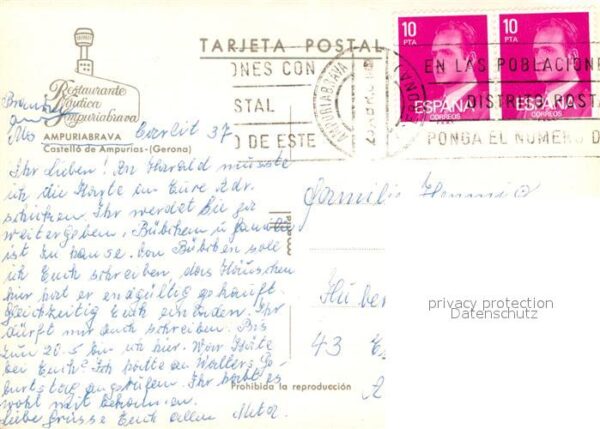 TARJETA POSTAL
Restaurante
Náutica
Ampuriabrava
AMPURIABRAVA
Castelló de Ampurias-(Gerona)
10
PTA
ESPAÑA
CORREOS
10
PTA
ESPAÑA
CORREOS
ONES CON
STAL
O DE ESTE
AMPURIABRAVA
EN LAS POBLACIONE
DISTRITO POSTA
PONGA EL NUMERO D
Carlit 37
Ihr Lieben! An Harald musste
ich die Karte an Eure Adr.
schicken. Ihr werdet sie ja
weitergeben. Bübchen u.
ist zu hause. Von Bübchen soll
ich Euch schreiben, das Häuschen
hier hat er endgültig gekauft.
Gleichzeitig Euch einladen. Ihr
dürft mir auch schreiben. Bis
zum 20.5 bin ich hier. War Käte
bei Euch? Ich hatte an Walters Ge-
burtstag angerufen. Ihr habt es
wohl mit bekommen.
liebe Grüsse Euch allen
Familie
43
Prohibida la reproducción
privacy protection
Datenschutz